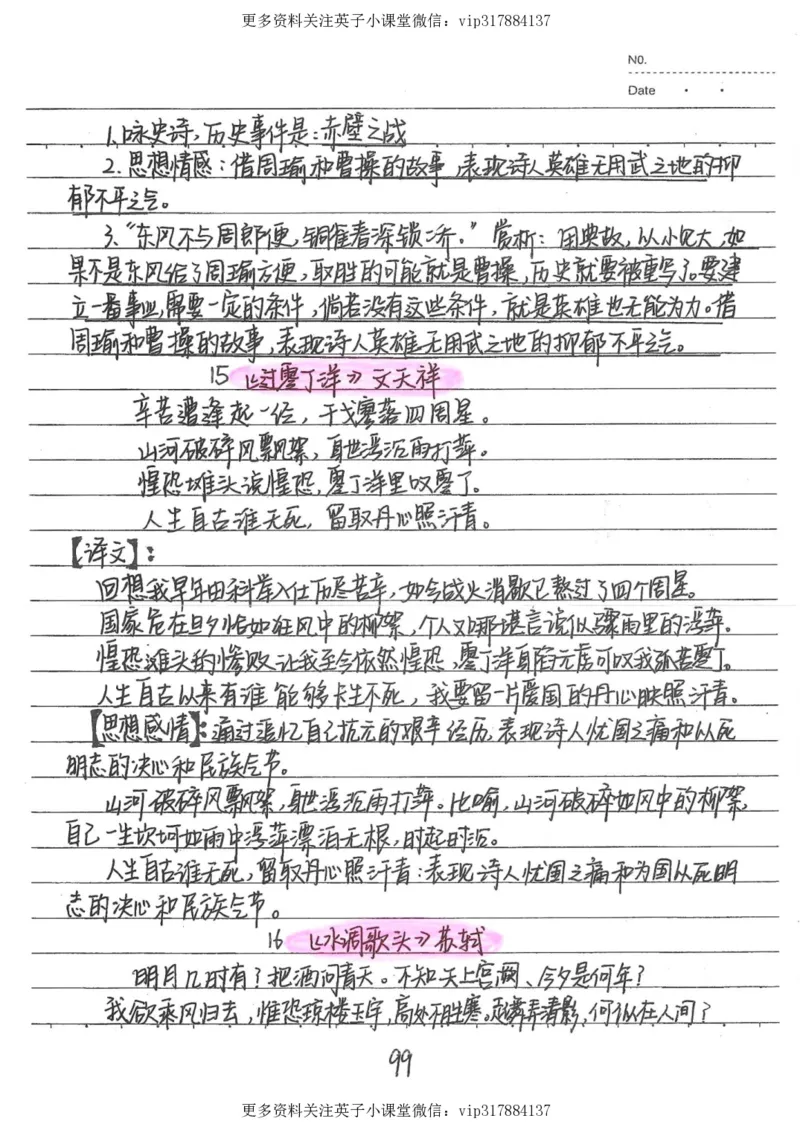 更多资料关注英子小课堂微信：vip317884137
NO.
Date
1.咏史诗，历史事件是：赤壁之战
2.思想情感：借周瑜和曹操的故事，表现诗人英雄无用武之地的抑
郁不平之气。
3.“东风不与周郎便，铜雀春深锁二乔。”赏析：用典故，以小见大，如
果不是东风给了周瑜方便，取胜的可能就是曹操，历史就要被重写了。要建
立一番事业，需要一定的条件，倘若没有这些条件，就是英雄也无能为力。借
周瑜和曹操的故事，表现诗人英雄无用武之地的抑郁不平之气。
15《过零丁洋》文天祥
辛苦遭逢起一经，干戈寥落四周星。
山河破碎风飘絮，身世浮沉雨打萍。
惶恐滩头说惶恐，零丁洋里叹零丁。
人生自古谁无死，留取丹心照汗青。
【译文】：
回想我早年由科举入仕历尽苦辛，如今战火消歇已熬过了四个周星。
国家危在旦夕恰如狂风中的柳絮，个人又哪堪言说似骤雨里的浮萍。
惶恐滩头的惨败让我至今依然惶恐，零丁洋身陷元虏可叹我孤苦零丁。
人生自古以来有谁能够长生不死，我要留一片爱国的丹心映照汗青。
【思想感情】：通过追忆自己抗元的艰辛经历，表现诗人忧国之痛和以死
明志的决心和民族气节。
山河破碎风飘絮，身世浮沉雨打萍。比喻，山河破碎如风中的柳絮，
自己一生坎坷如雨中浮萍漂泊无根，时起时沉。
人生自古谁无死，留取丹心照汗青：表现诗人忧国之痛和为国以死明
志的决心和民族气节。
16《水调歌头》苏轼
明月几时有？把酒问青天。不知天上宫阙、今夕是何年？
我欲乘风归去，惟恐琼楼玉宇，高处不胜寒。起舞弄清影，何似在人间？
99
更多资料关注英子小课堂微信：vip317884137